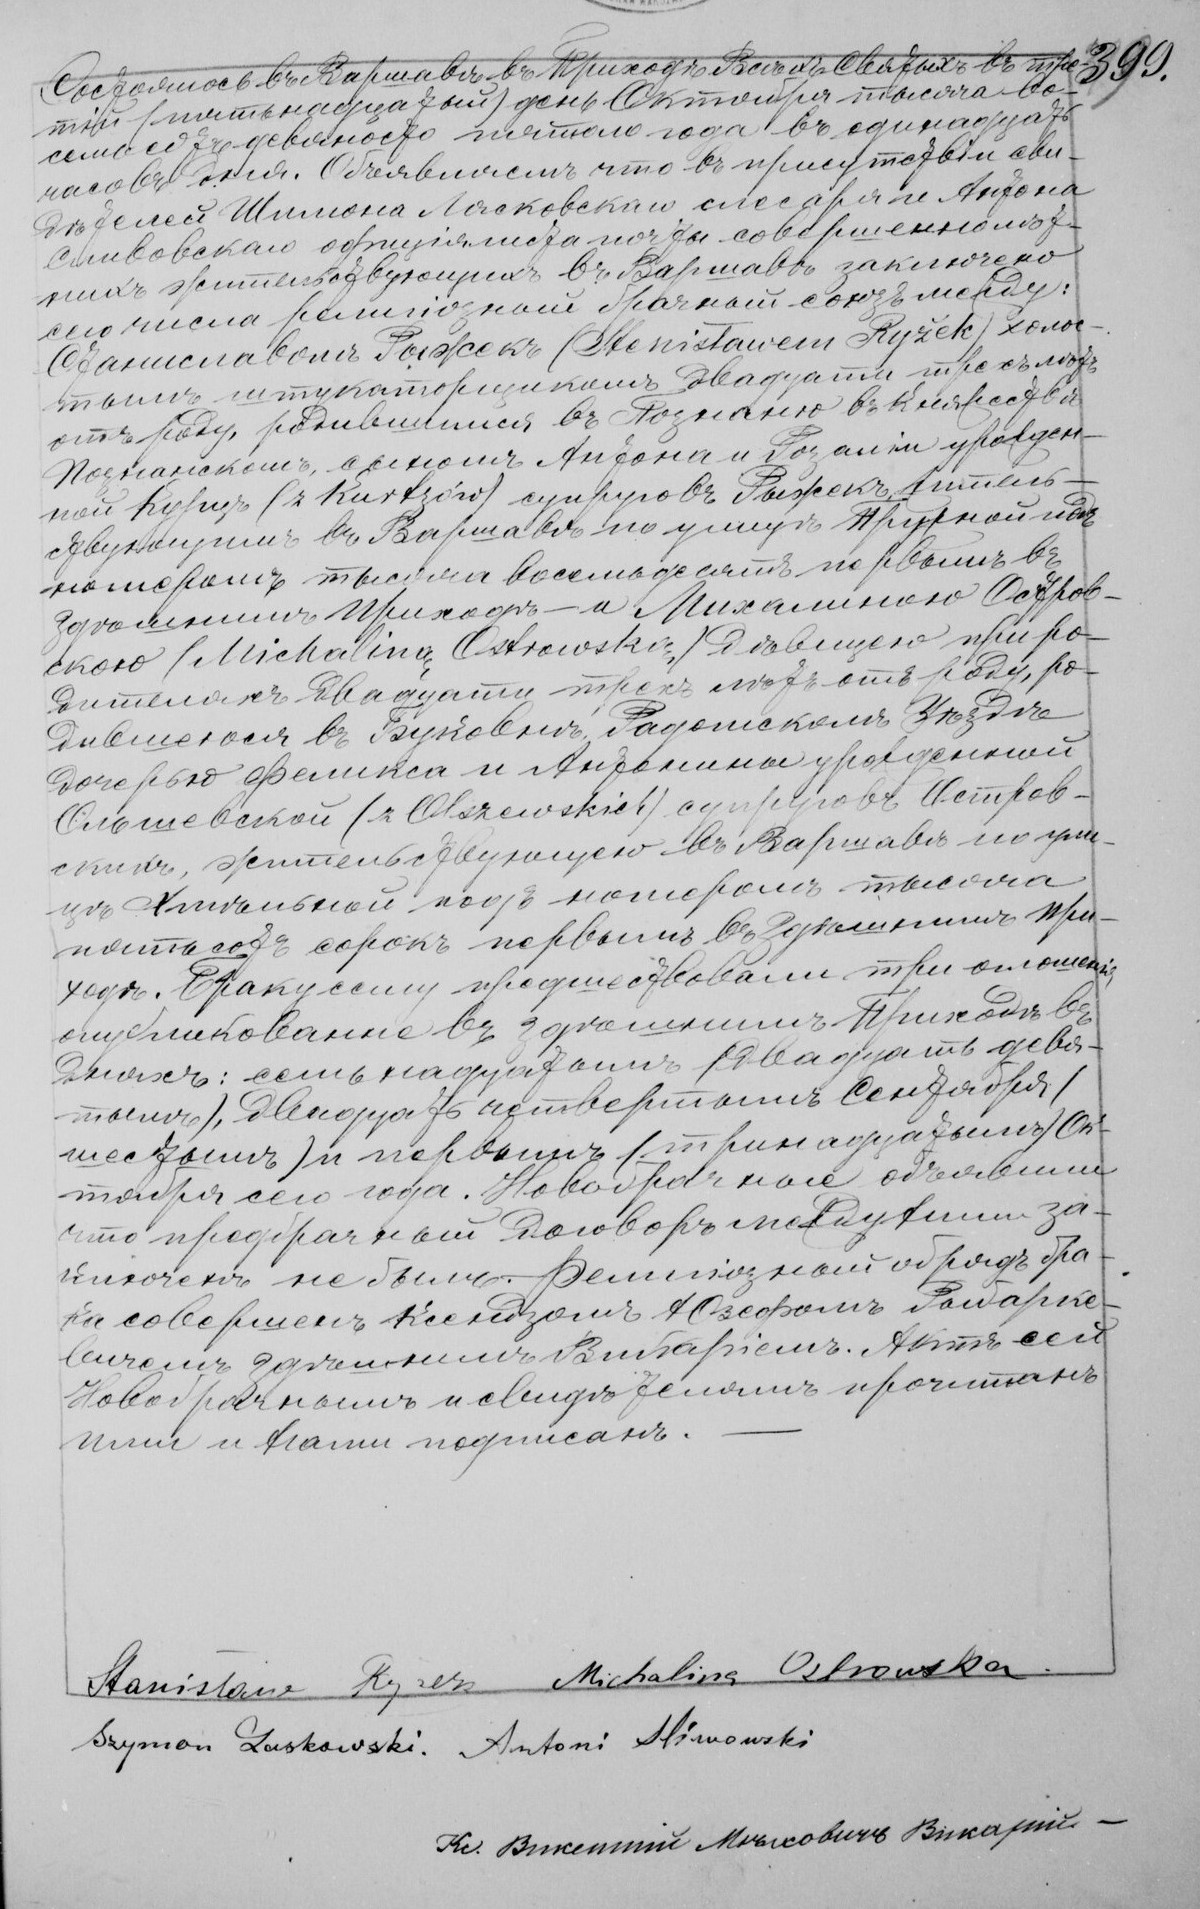 399.
Состоялось въ Варшавѣ въ Приходѣ Всѣхъ Святыхъ въ тре-
тій (пятьнадцатый) день Октября тысяча во-
семьсотъ девяносто пятого года въ одинадцать
часовъ дня. Объявляемъ что въ присутствіи сви-
дѣтелей Шимона Лясковскаго слесаря и Антона
Сливовскаго оффиціялиста почты совершеннолѣт-
нихъ жительствующихъ въ Варшавѣ заключено
сего числа религіозный брачный союзъ между:
Станиславомъ Рыжекъ (Stanisławem Ryżek) холос-
тымъ штукаторщикомъ двадцати трехъ лѣтъ
отъ роду, родившимся въ Познаню въ Княжествѣ
Познанскомъ, сыномъ Антона и Розаліи урожден-
ной Курцъ (z Kurtzów) супруговъ Рыжекъ, житель-
ствующимъ въ Варшавѣ по улицѣ Прутной подъ
номеромъ тысяча восемьдесятъ первымъ въ
здѣшнимъ Приходѣ — и Михалиною Остров-
скою (Michaliną Ostrowską) дѣвицею при ро-
дителяхъ двадцати трехъ лѣтъ отъ роду, ро-
дившеюся въ Буковнѣ, Радомскомъ Уѣздѣ
дочерью Феликса и Антонины урожденной
Ольшевской (z Olszewskich) супруговъ Остров-
скихъ, жительствующею въ Варшавѣ по ули-
цѣ Хмѣльной подъ номеромъ тысяча
пятьсотъ сорокъ первымъ въ здѣшнимъ При-
ходѣ. Браку сему предшествовали три оглашенія
опубликованне въ здѣшнимъ Приходѣ въ
дняхъ: семьнадцатымъ (двадцать девя-
тымъ), двадцать четвертымъ Сентября (
шестымъ) и первымъ (тринадцатымъ) Ок-
тября сего года. Новобрачные объявили
что предбрачный договоръ между ними за-
ключенъ не былъ. Религіозный обрядъ бра-
ка совершенъ Ксендзомъ Юзефомъ
здѣшнимъ Викаріемъ. Актъ сей
Новобрачнымъ и свидѣтелямъ прочитанъ
ими и нами подписанъ. —
Stanisław Ryżek Michalina Ostrowska.
Szymon Laskowski. Antoni Sliwowski
Кс. Викентій Викарій —